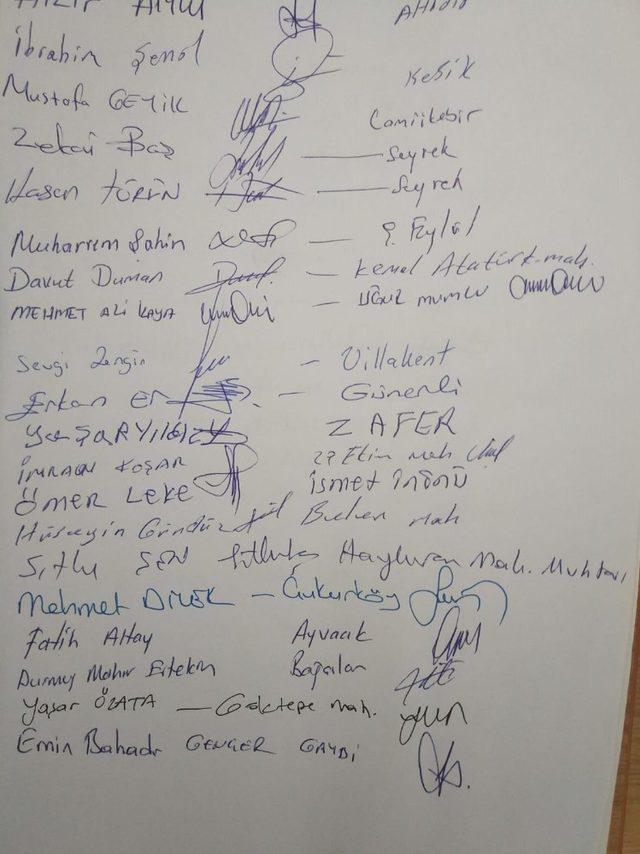 İbrahim Şenol
Mustafa GEYİK Kesik
Zekai Baş Camiikebir
Hasan TÜRÜN Seyrek
Seyrek
Muharrem Şahin — 9. Eylül
Davut Duman — Kemal Atatürk mah.
MEHMET ALİ KAYA — UĞUR MUMCU
Sevgi Zengin — Villakent
Erkan ER — Günerli
YAŞAR YILDIZ ZAFER
İMRAN KOŞAR 29 Ekim mah
ÖMER LEKE İSMET İNÖNÜ
Hüseyin Gündüz mah
Sıtkı ŞEN Mah. Muhtarı
Mehmet DİLEK — Çukurköy
Fatih Altay Ayvacık
Durmuş Mahir Ertekin Bağarlan
Yaşar ÖZATA — Göktepe mah.
Emin Bahadır GENÇER GAYBİ